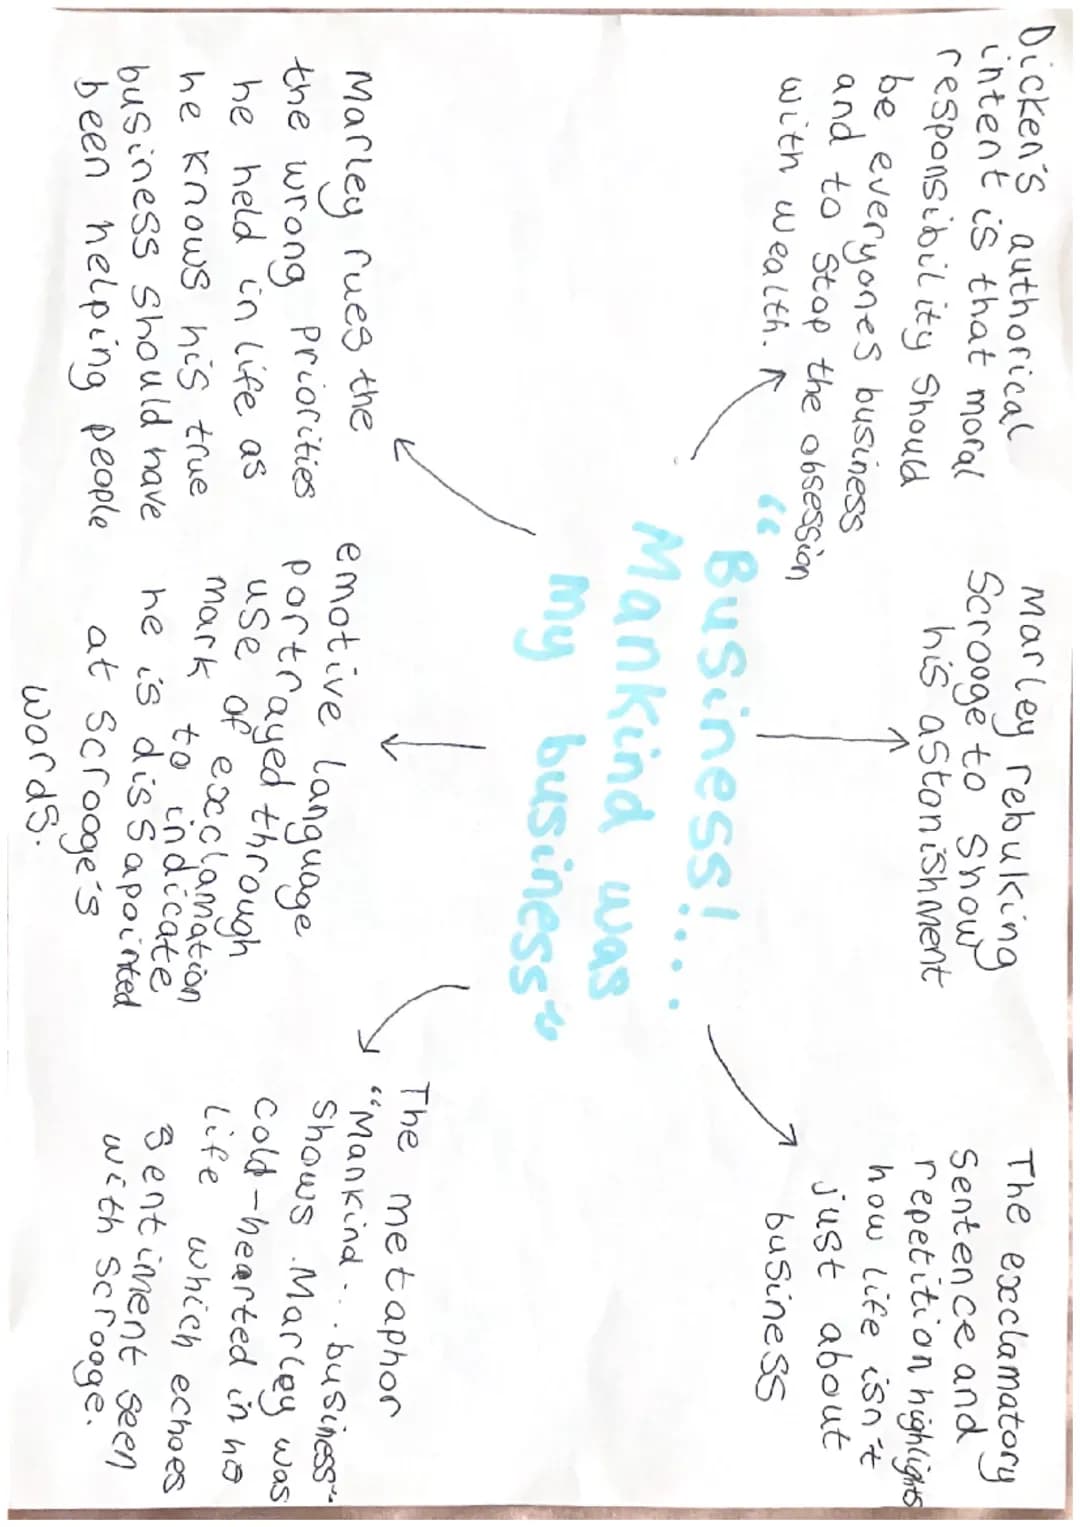 Dicken's authorical
intent is that moral
responsibility should
be everyones business
and to stop the obsession
with wealth.
Marley rebuking
Scrooge to show
his astonishment
The exclamatory
sentence and
repetition highlights
how life isn't
just about
business
"Business!...
Mankind was
my business"
Marley rues the
the wrong priorities
he held in life as
he knows his true
business should have
been helping people
emotive language
portrayed through
use of exclamation
mark to indicate
he is dissapointed
at scrooge's
words.
The metaphor
"Mankind... business"
shows Marley was
cold-hearted in his
life which echoes
sentiment seen
with scrooge.